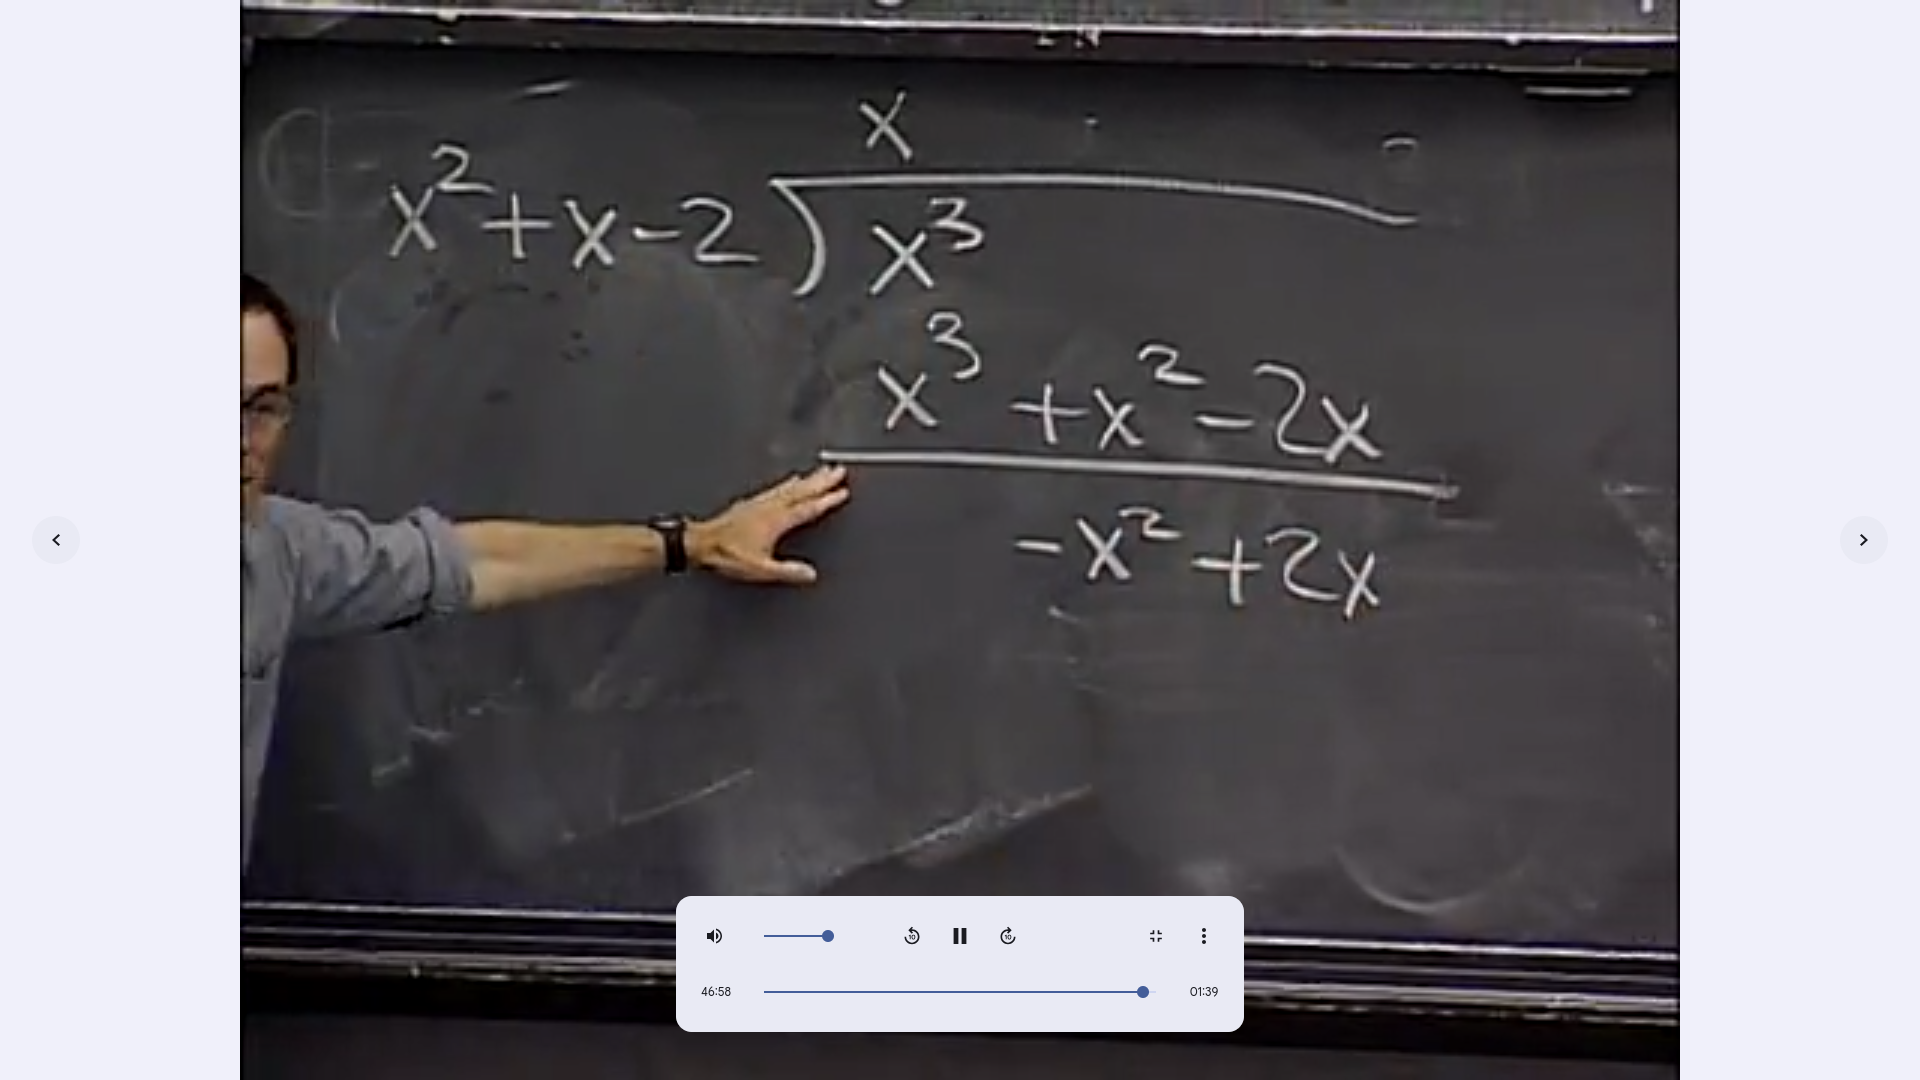 x
x²+x-2 ) x³
x³ +x²-2x
-x²+2x
10 10
46:58 01:39